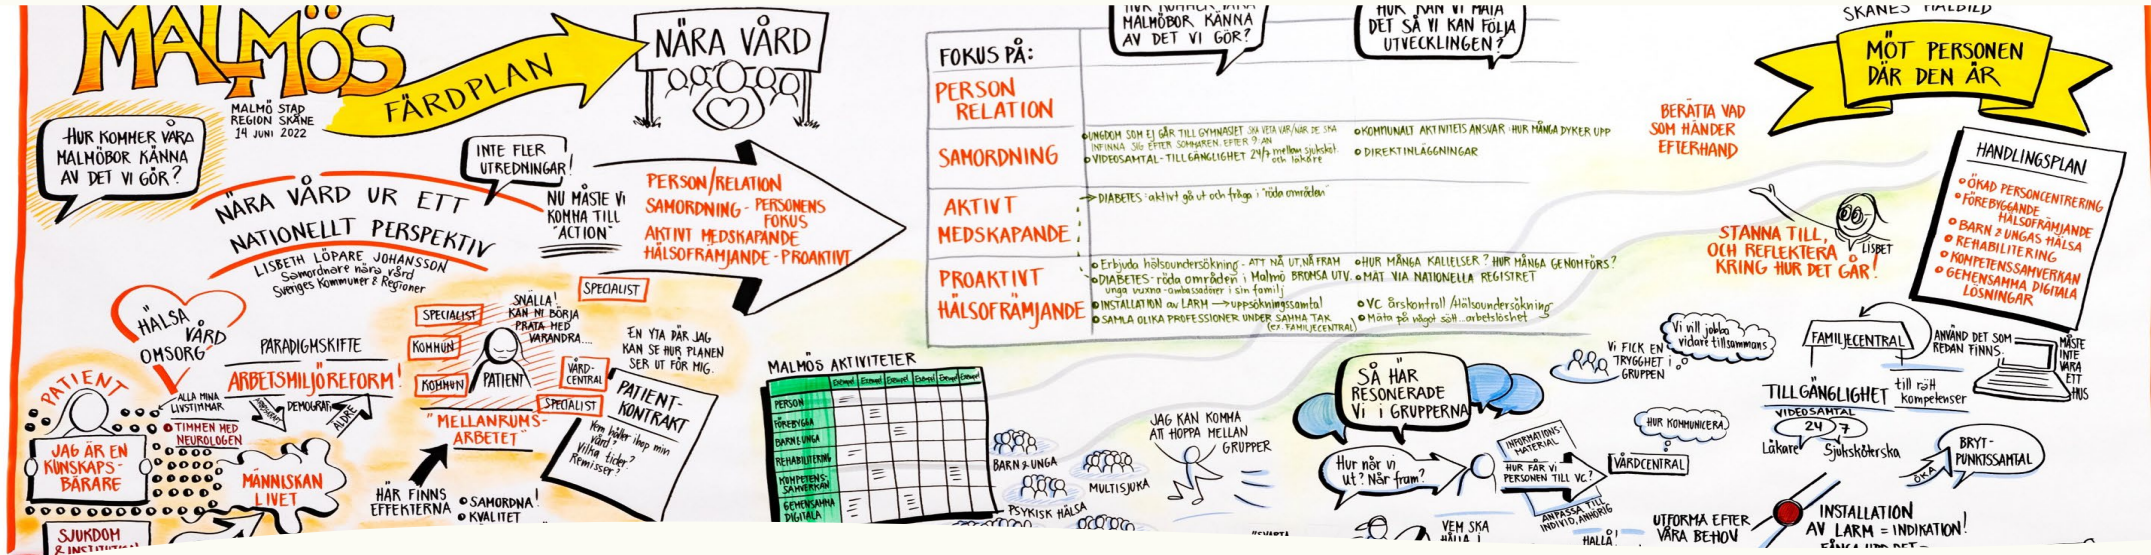 MALMÖS
FÄRDPLAN
NÄRA VÅRD
MALMÖ STAD
REGION SKÅNE
14 JUNI 2022
HUR KOMMER VÅRA
MALMÖBOR KÄNNA
AV DET VI GÖR?
NÄRA VÅRD UR ETT
NATIONELLT PERSPEKTIV
LISBETH LÖPARE JOHANSSON
Samordnare nära vård
Sveriges Kommuner & Regioner
INTE FLER
UTREDNINGAR!
NU MÅSTE VI
KOMMA TILL
"ACTION"
PERSON/RELATION
SAMORDNING - PERSONENS
FOKUS
AKTIVT MEDSKAPANDE
HÄLSOFRÄMJANDE - PROAKTIVT
HÄLSA
VÅRD
OMSORG
PARADIGMSKIFTE
ARBETSMILJÖREFORM!
DEMOGRAFI
ÄLDRE
PATIENT
JAG ÄR EN
KUNSKAPS-
BÄRARE
ALLA MINA
LIVSTIMMAR
TIMMEN MED
NEUROLOGEN
MÄNNISKAN
LIVET
SJUKDOM
SPECIALIST
KOMMUN
KOMMUN
SNÄLLA!
KAN NI BÖRJA
PRATA MED
VARANDRA....
PATIENT
SPECIALIST
VÅRD-
CENTRAL
SPECIALIST
"MELLANRUMS-
ARBETET"
HÄR FINNS
EFFEKTERNA
SAMORDNA!
KVALITET
EN YTA DÄR JAG
KAN SE HUR PLANEN
SER UT FÖR MIG.
PATIENT-
KONTRAKT
Vem håller ihop min
vård?
Vilka tider?
Remisser?
HUR KOMMER VÅRA
MALMÖBOR KÄNNA
AV DET VI GÖR?
HUR KAN VI MÄTA
DET SÅ VI KAN FÖLJA
UTVECKLINGEN?
FOKUS PÅ:
PERSON
RELATION
SAMORDNING
UNGDOM SOM EJ GÅR TILL GYMNASIET SKA VETA VAR/NÄR DE SKA
INFINNA SIG EFTER SOMMAREN. EFTER 9:AN
VIDEOSAMTAL - TILLGÄNGLIGHET 24/7 mellan sjuksköt.
och läkare
KOMMUNALT AKTIVITETS ANSVAR · HUR MÅNGA DYKER UPP
DIREKTINLÄGGNINGAR
AKTIVT
MEDSKAPANDE
DIABETES: aktivt gå ut och fråga i "röda områden"
PROAKTIVT
HÄLSOFRÄMJANDE
Erbjuda hälsoundersökning - ATT NÅ UT, NÅ FRAM
DIABETES - röda områden i Malmö BROMSA UTV.
unga vuxna - ambassadörer i sin familj
INSTALLATION av LARM → uppsökningssamtal
SAMLA OLIKA PROFESSIONER UNDER SAMMA TAK
(ex. FAMILJECENTRAL)
HUR MÅNGA KALLELSER? HUR MÅNGA GENOMFÖRS?
MÄT VIA NATIONELLA REGISTRET
VC årskontroll/Hälsoundersökning
Mäta på något sätt...arbetslöshet
MALMÖS AKTIVITETER
Exempel Exempel Exempel Exempel Exempel Exempel
PERSON
FÖREBYGGA
BARN & UNGA
REHABILITERING
KOMPETENS-
SAMVERKAN
GEMENSAMMA
DIGITALA
BARN & UNGA
MULTISJUKA
PSYKISK HÄLSA
JAG KAN KOMMA
ATT HOPPA MELLAN
GRUPPER
SÅ HÄR
RESONERADE
Vi i GRUPPERNA
Hur når vi
ut? Når fram?
INFORMATIONS-
MATERIAL
HUR FÅR VI
PERSONEN TILL VC?
ANPASSA TILL
INDIVID, ANHÖRIG
VÅRDCENTRAL
HUR KOMMUNICERA
VEM SKA
HÅLLA I
HALLÅ!
UTFORMA EFTER
VÅRA BEHOV
Vi FICK EN
TRYGGHET i
GRUPPEN
Vi vill jobba
vidare tillsammans
SKÅNES MÅLBILD
MÖT PERSONEN
DÄR DEN ÄR
BERÄTTA VAD
SOM HÄNDER
EFTERHAND
STANNA TILL,
OCH REFLEKTERA
KRING HUR DET GÅR!
LISBET
HANDLINGSPLAN
ÖKAD PERSONCENTRERING
FÖREBYGGANDE
HÄLSOFRÄMJANDE
BARN & UNGAS HÄLSA
REHABILITERING
KOMPETENSSAMVERKAN
GEMENSAMMA DIGITALA
LÖSNINGAR
FAMILJECENTRAL
ANVÄND DET SOM
REDAN FINNS.
MÅSTE
INTE
VARA
ETT
HUS
TILLGÄNGLIGHET
till rätt
kompetenser
VIDEOSAMTAL
24 7
Läkare
Sjuksköterska
ÖKA
BRYT-
PUNKTSSAMTAL
INSTALLATION
AV LARM = INDIKATION!
FÅNGA UPP DET